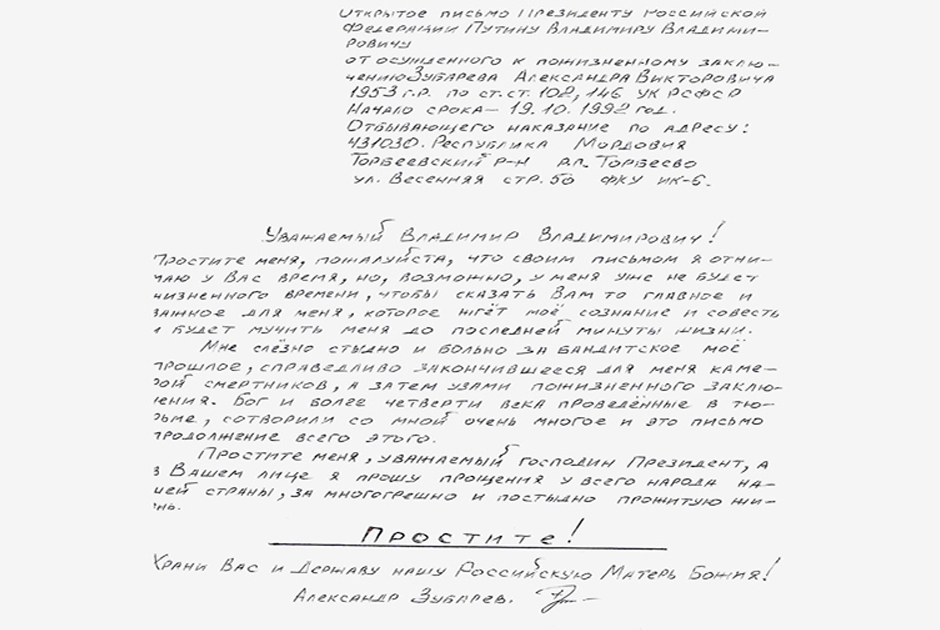 Открытое письмо Президенту Российской
Федерации Путину Владимиру Владими-
ровичу
от осужденного к пожизненному заклю-
чению Зубарева Александра Викторовича
1953 г.р. по ст.ст. 102, 146 УК РСФСР
Начало срока – 19.10.1992 год.
Отбывающего наказание по адресу:
431030. Республика Мордовия
Торбеевский р-н р.п. Торбеево
ул. Весенняя стр. 50 ФКУ ИК-6.
Уважаемый Владимир Владимирович!
Простите меня, пожалуйста, что своим письмом я отни-
маю у Вас время, но, возможно, у меня уже не будет
жизненного времени, чтобы сказать Вам то главное и
важное для меня, которое жгёт моё сознание и совесть
и будет мучить меня до последней минуты жизни.
Мне слёзно стыдно и больно за бандитское моё
прошлое, справедливо закончившееся для меня каме-
рой смертников, а затем узами пожизненного заклю-
чения. Бог и более четверти века проведённые в тю-
рьме, сотворили со мной очень многое и это письмо
продолжение всего этого.
Простите меня, уважаемый господин Президент, а
в Вашем лице я прошу прощения у всего народа на-
шей страны, за многогрешно и постыдно прожитую жи-
знь.
Простите!
Храни Вас и Державу нашу Российскую Матерь Божия!
Александр Зубарев.